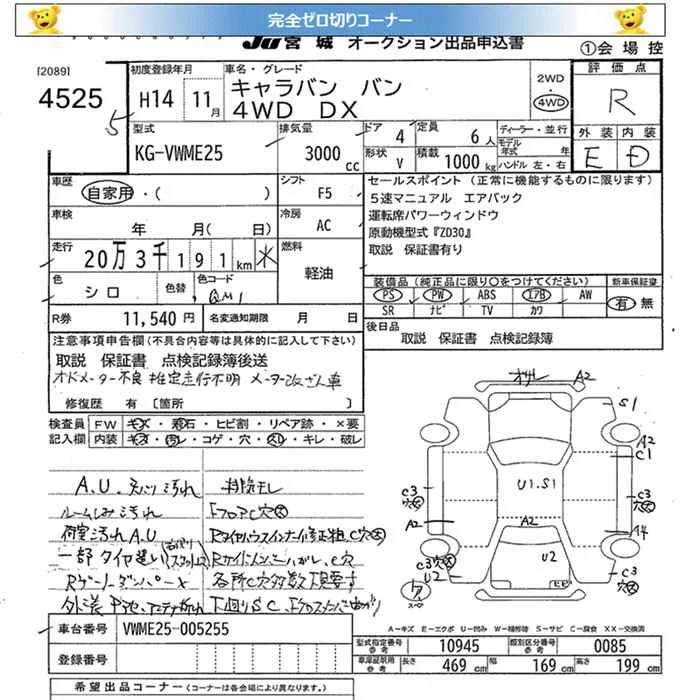 完全ゼロ切りコーナー
JU宮城 オークション出品申込書
①会場控
[2089]
4525
初度登録年月
H14 11月
車名・グレード
キャラバン バン
4WD DX
2WD
4WD
評価点
R
外装 内装
E D
型式
KG-VWME25
排気量
3000cc
ドア 4
定員 6人
形状 V
積載 1000kg
ディーラー・並行
モデル年式 年
ハンドル 左・右
車歴
自家用・( )
シフト
F5
車検
年 月( 日)
冷房
AC
走行
20万3千191km
燃料
軽油
色
シロ
色替
色コード
QM1
R券 11,540円
名変通知期限 月 日
セールスポイント (正常に機能するものに限ります)
5速マニュアル エアバック
運転席パワーウィンドウ
原動機型式『ZD30』
取説 保証書有り
装備品(純正品に限り○をつけてください)
PS PW ABS エアB AW
SR ナビ TV カワ
新車保証書
有 無
後日品
取説 保証書 点検記録簿
注意事項申告欄(不具合内容等は具体的に記入して下さい)
取説 保証書 点検記録簿後送
オドメーター不良 推定走行不明 メーター改ざん車
修復歴 有 〔箇所 〕
検査員記入欄
FW キズ・飛石・ヒビ割・リペア跡・×要
内装 キズ・汚レ・コゲ・穴・スレ・キレ・破レ
A.U.スパリ汚れ
ルームしみ汚れ
荷室汚れA.U
一部タイヤ違い
下廻りSC
オサレ A2
S1
A2
C1
U1.S1
C3
A2
A2
C3
A4
U2
C3
U2
C3
ヒビ
スペア
A-キズ E-エクボ U-凹み W-補修跡 S-サビ C-腐食 XX-交換済
車台番号 VWME25-005255
登録番号
型式指定番号 参考 10945
類別区分番号 参考 0085
車庫証明用 参考
長さ 469cm
幅 169cm
高さ 199cm
希望出品コーナー(コーナーは各会場により異なります。)